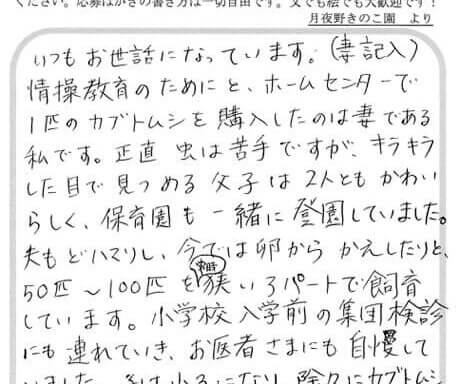 ください。応募はがきの書き方は一切自由です。文でも絵でも大歓迎です！
月夜野きのこ園　より
いつもお世話になっています。(妻記入)
情操教育のためにと、ホームセンターで
1匹のカブトムシを購入したのは妻である
私です。正直 虫は苦手ですが、キラキラ
した目で見つめる父子は2人ともかわい
らしく、保育園も一緒に登園していました。
夫もどハマりし、今では卵からかえしたりと、
50匹～100匹を当時狭いアパートで飼育
しています。小学校入学前の集団検診
にも連れていき、お医者さまにも自慢して
いました。